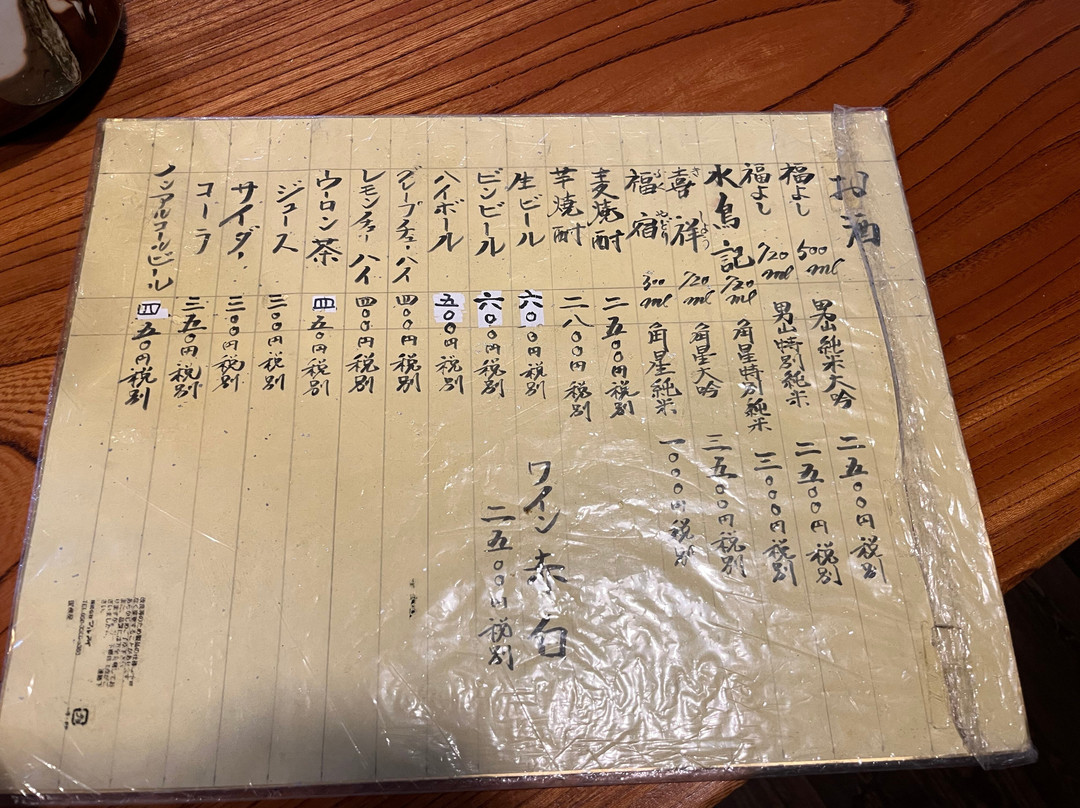 お酒
福よし 500ml 男山純米大吟 二五〇〇円税別
福よし 720ml 男山特別純米 二五〇〇円税別
水鳥記 720ml 角星特別純米 三〇〇〇円税別
喜祥 きしょう 720ml 角星大吟 三五〇〇円税別
福宿 ふくやどり 300ml 角星純米 一〇〇〇円税別
麦焼酎 二五〇〇円税別
芋焼酎 二八〇〇円税別
生ビール 六〇〇円税別
ビンビール 六〇〇円税別
ハイボール 五〇〇円税別
グレープチューハイ 四〇〇円税別
レモンチューハイ 四〇〇円税別
ウーロン茶 四五〇円税別
ジュース 三〇〇円税別
サイダー 三〇〇円税別
コーラ 三五〇円税別
ノンアルコールビール 四五〇円税別
ワイン 赤・白
二五〇〇円税別